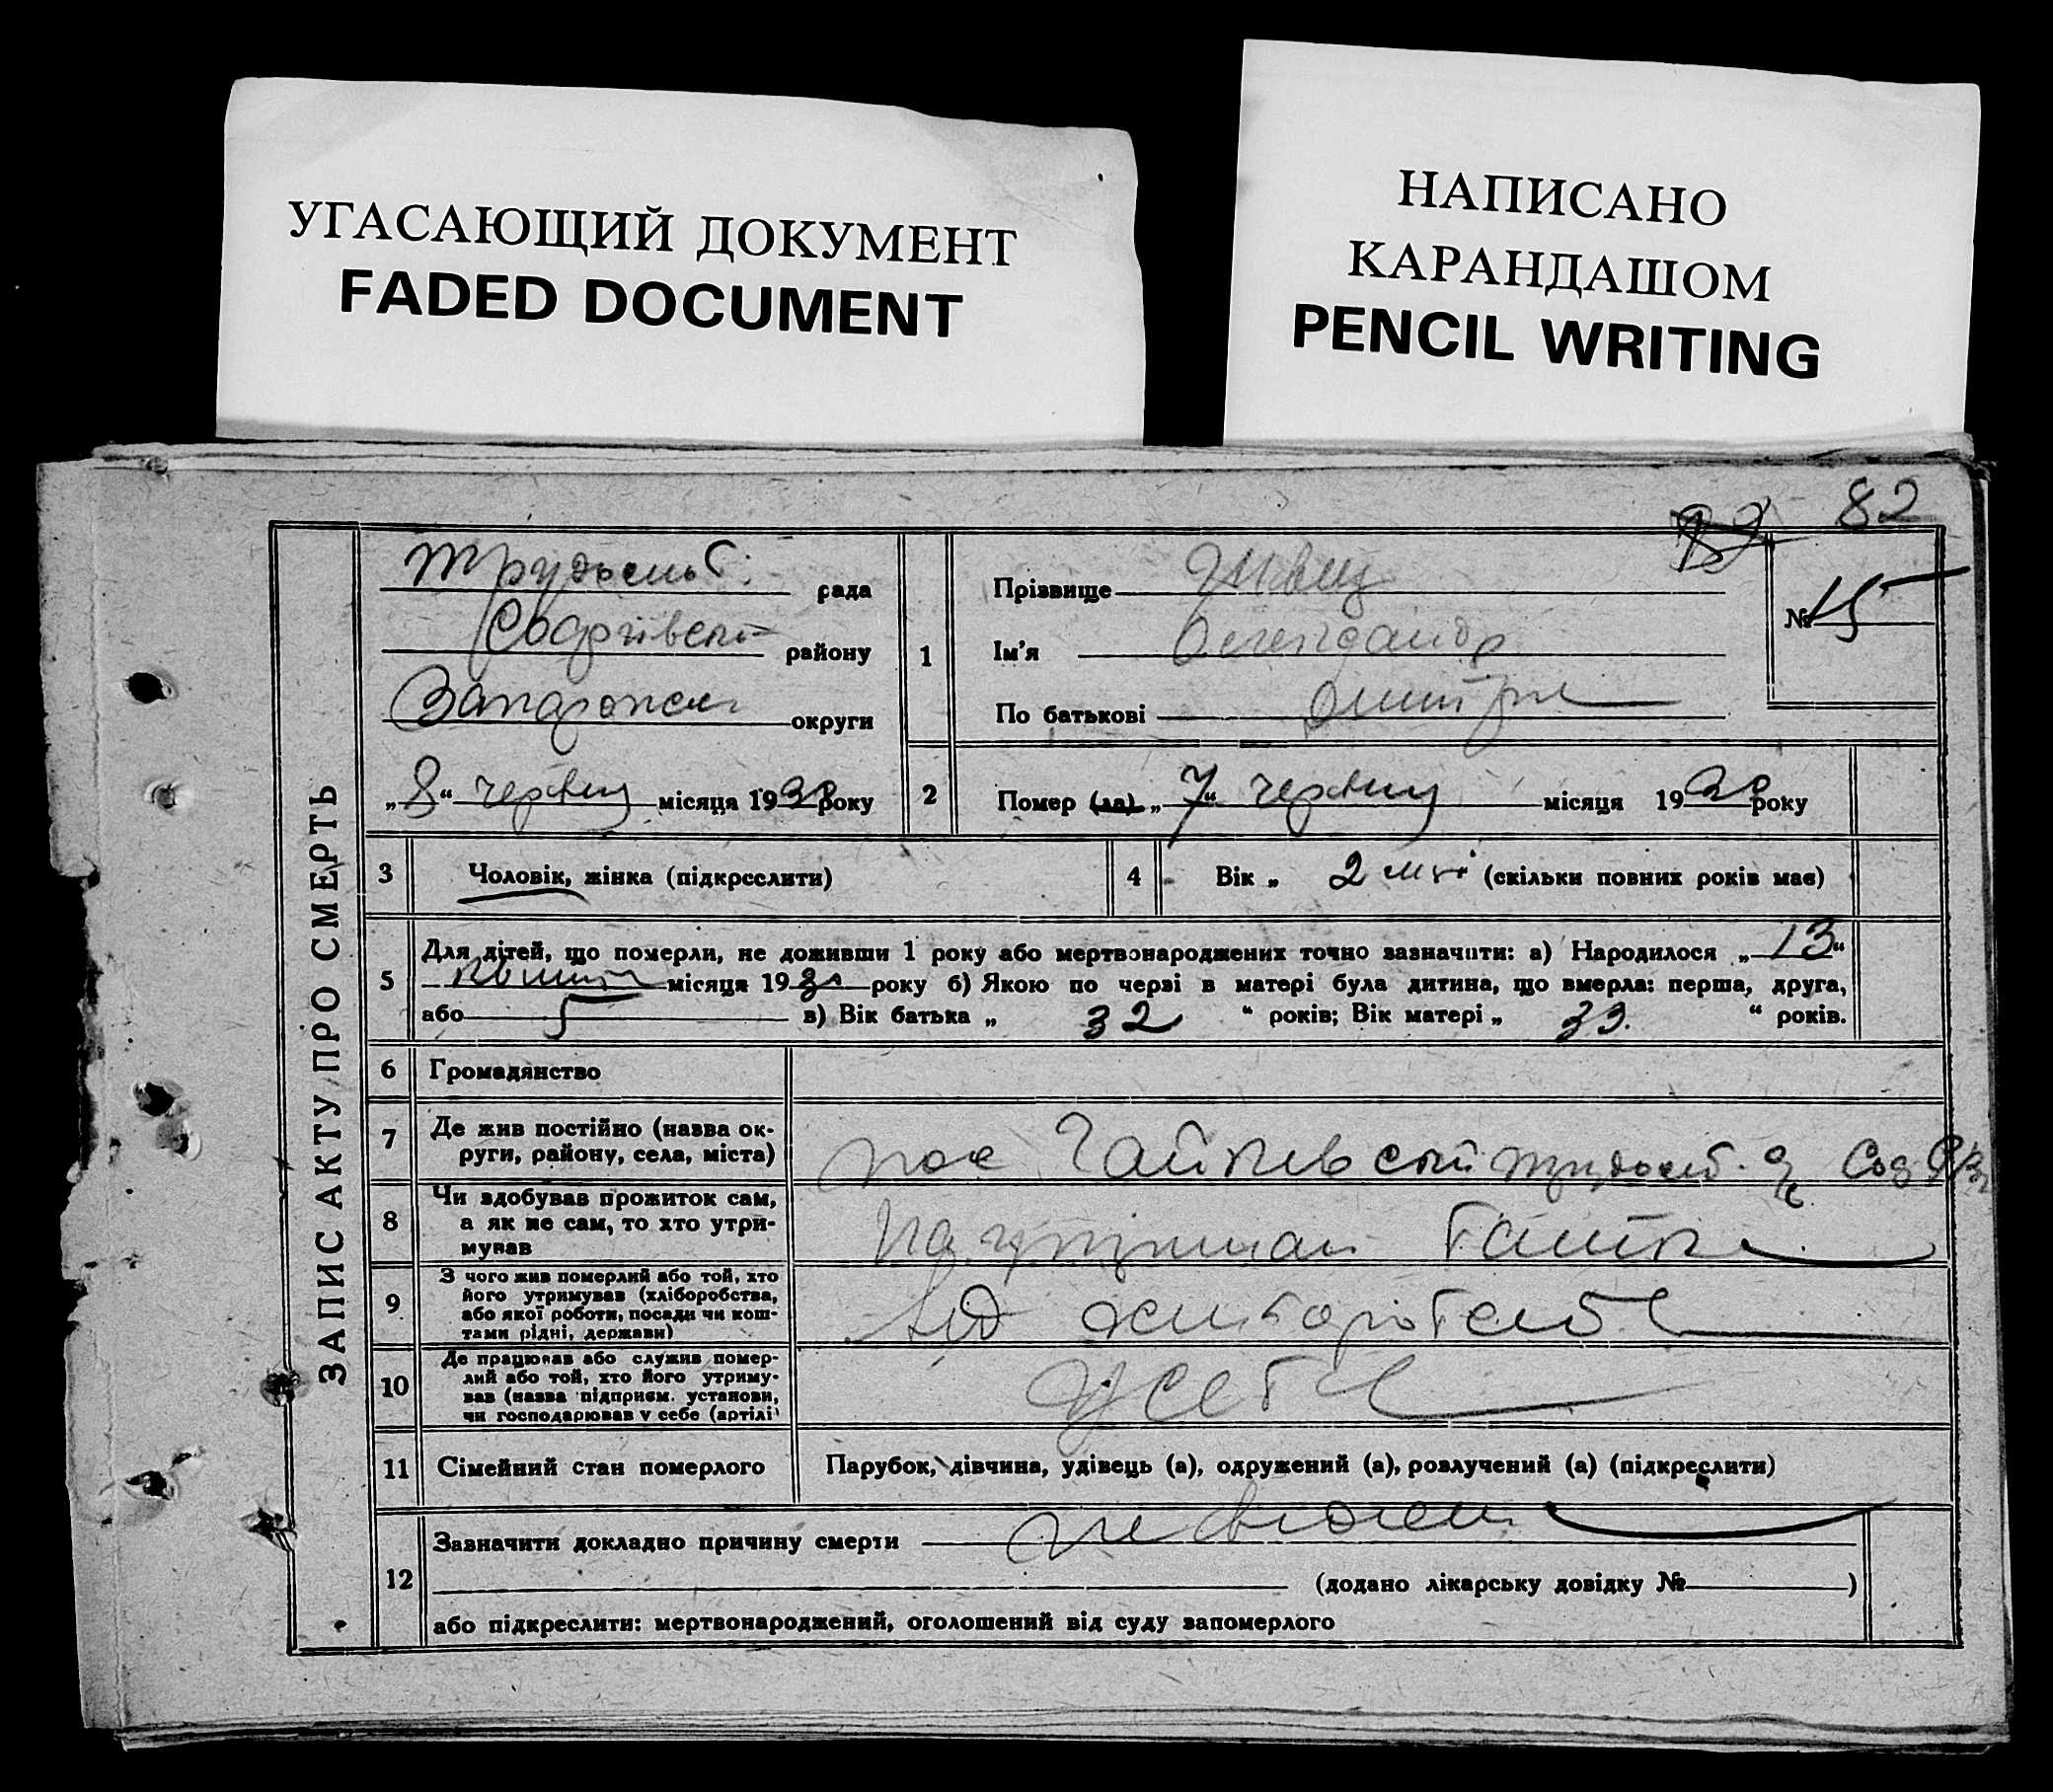 УГАСАЮЩИЙ ДОКУМЕНТ
FADED DOCUMENT
НАПИСАНО
КАРАНДАШОМ
PENCIL WRITING
82
ЗАПИС АКТУ ПРО СМЕРТЬ
рада
району
округи
„8“ червня місяця 1930 року
1
Прізвище Швец
Ім'я Олександр
По батькові Дмитро
№ 15
2
Помер (ла) „7“ червня місяця 1930 року
3
Чоловік, жінка (підкреслити)
4
Вік „ 2 міс. (скільки повних років має)
5
Для дітей, що померли, не доживши 1 року або мертвонароджених точно зазначити: а) Народилося „13“
квітня місяця 1930 року б) Якою по черві в матері була дитина, що вмерла: перша, друга,
або 5 в) Вік батька „ 32 “ років; Вік матері „ 33. “ років.
6
Громадянство
7
Де жив постійно (назва ок-
руги, району, села, міста)
8
Чи здобував прожиток сам,
а як не сам, то хто утри-
мував
9
З чого жив померлий або той, хто
його утримував (хліборобства,
або якої роботи, посади чи кош-
тами рідні, держави)
10
Де працював або служив помер-
лий або той, хто його утриму-
вав (назва підприєм. установи,
чи господарював у себе (артілі)
У себе
11
Сімейний стан померлого
Парубок, дівчина, удівець (а), одружений (а), розлучений (а) (підкреслити)
12
Зазначити докладно причину смерти
(додано лікарську довідку № )
або підкреслити: мертвонароджений, оголошений від суду запомерлого